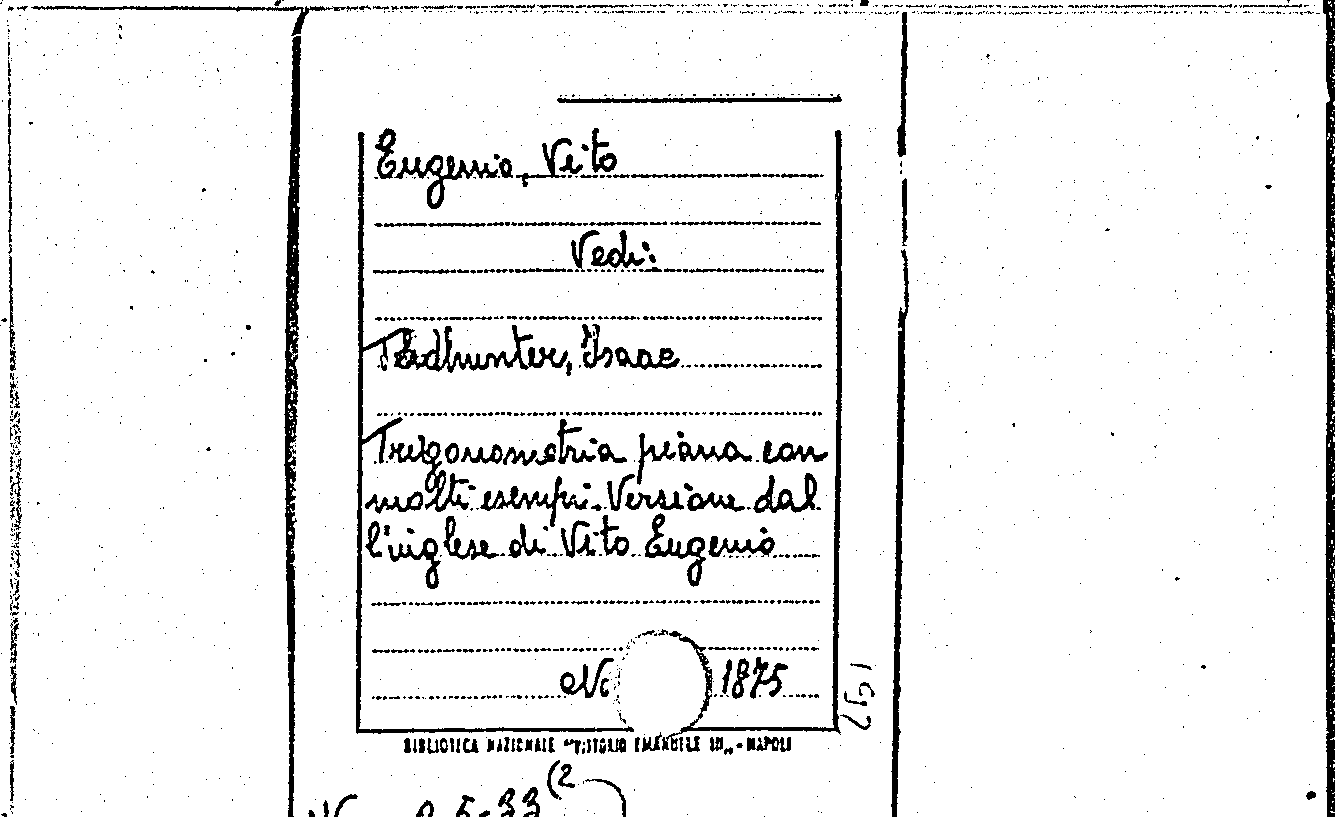 Eugenio, Vito
Vedi:
Todhunter, Isaac
Trigonometria piana con
molti esempi. Versione dal
l'inglese di Vito Eugenio
1875
BIBLIOTECA NAZIONALE "VITTORIO EMANUELE III„ - NAPOLI
(2